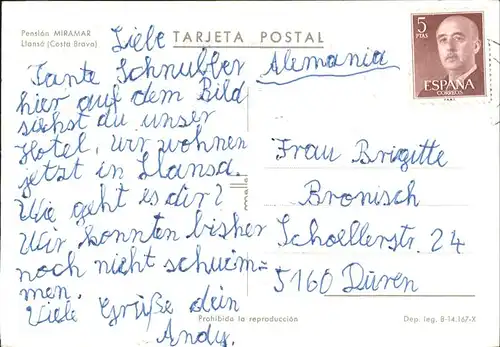 Pensión MIRAMAR
Llansá (Costa Brava)
TARJETA POSTAL
5
PTAS
ESPAÑA
CORREOS
Liebe
Tante Schnubber
hier auf dem Bild
siehst du unser
Hotel, wir wohnen
jetzt in Llansa.
Wie geht es dir?
Wir konnten bisher
noch nicht schwim=
men.
Viele Grüße dein
Andy.
Alemania
Frau Brigitte
Bronisch
Schoellerstr. 24
5160 Düren
Prohibida la reproducción
Dep. leg. B-14.167-X